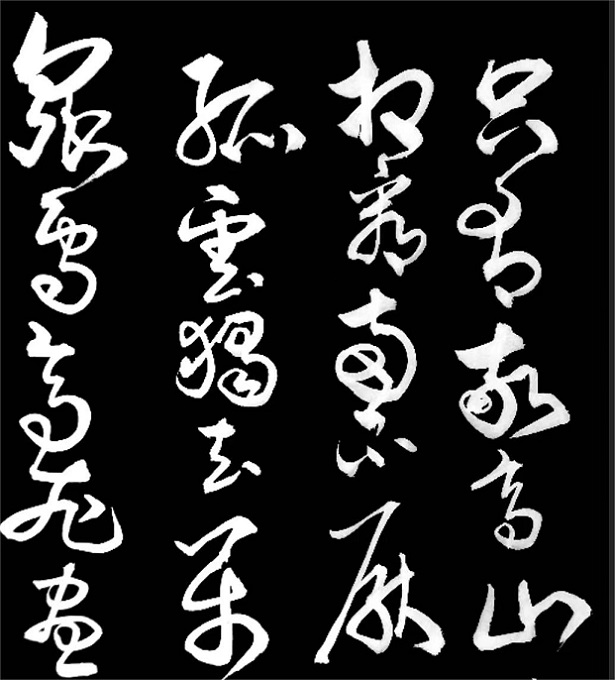 眾鳥高飛盡
孤雲獨去閒
相看兩不厭
只有敬亭山